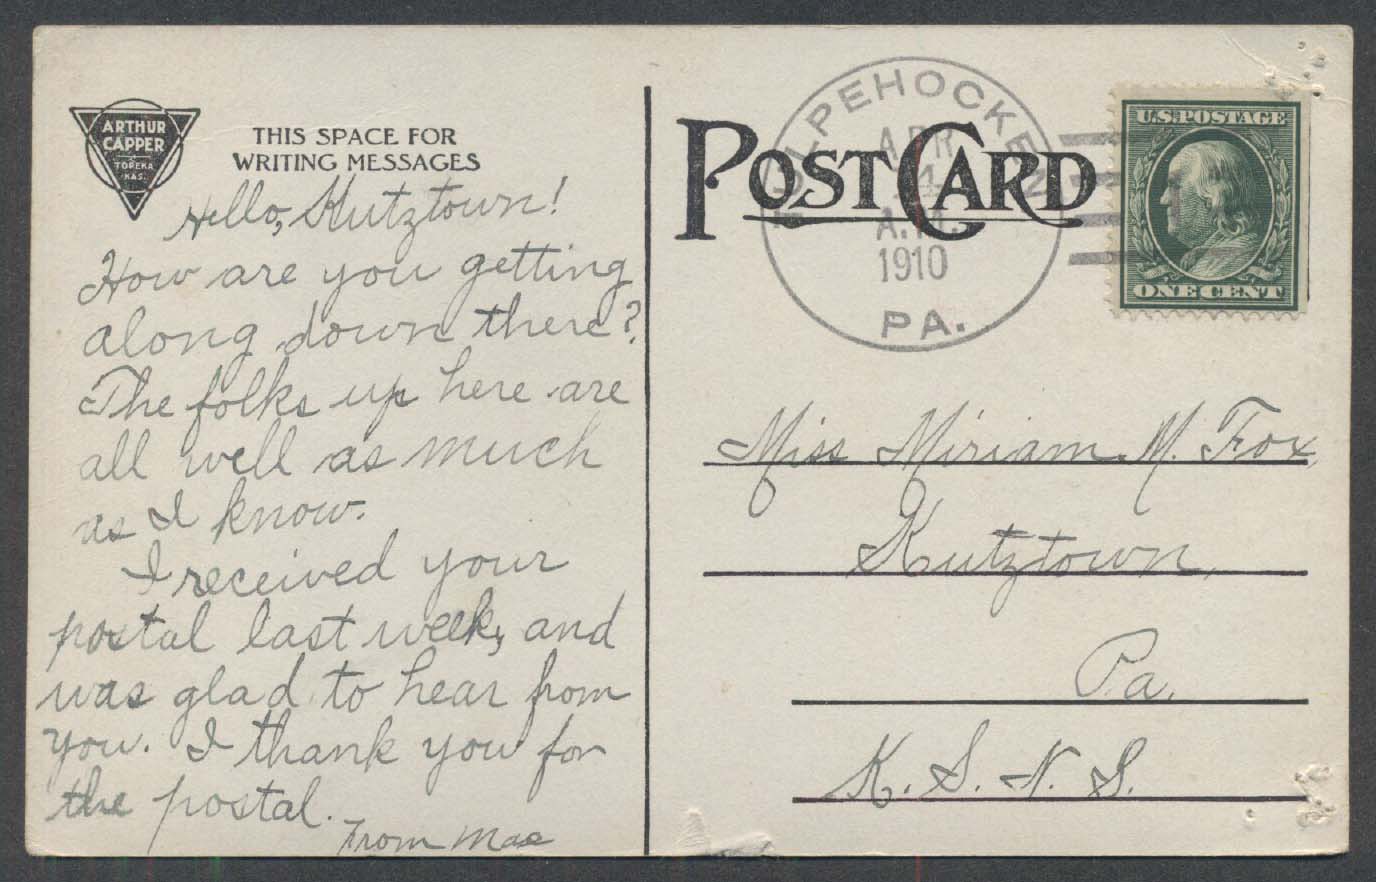 ARTHUR
CAPPER
TOPEKA
KAS.
THIS SPACE FOR
WRITING MESSAGES
Hello, Kutztown!
How are you getting
along down there?
The folks up here are
all well as much
as I know.
I received your
postal last week, and
was glad to hear from
you. I thank you for
the postal.
From Mae
POST CARD
TULPEHOCKEN
APR
A.M.
1910
PA.
U.S. POSTAGE
ONE CENT
Miss Miriam M. Fox
Kutztown,
Pa.
K. S. N. S.